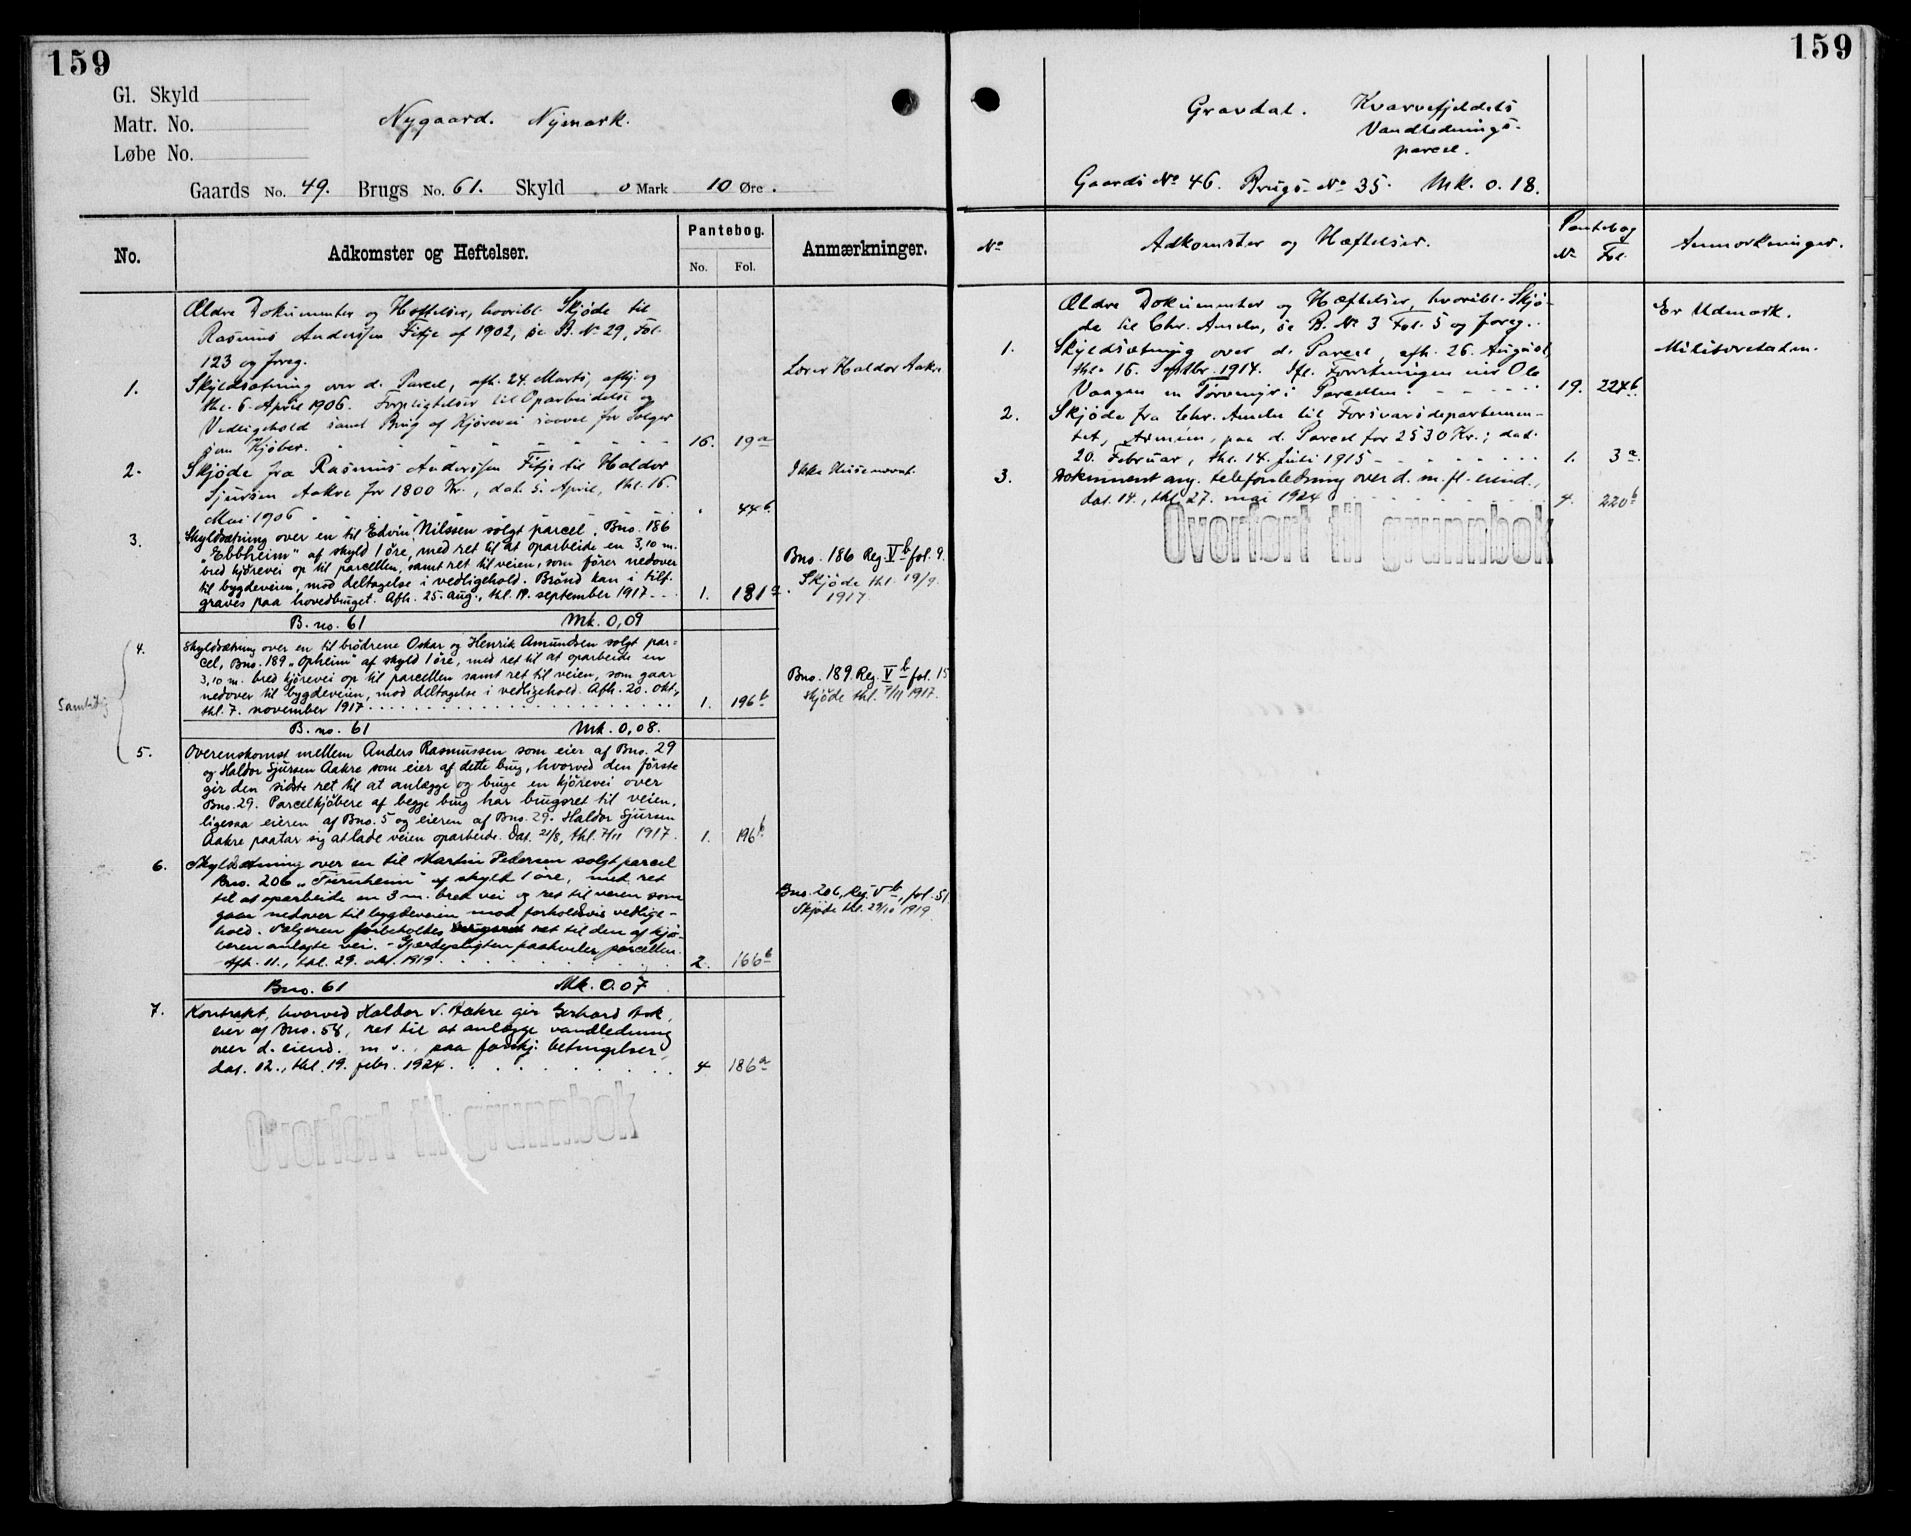 159
Gl. Skyld
Matr. No.
Løbe No.
Nygaard. Nymark.
Gaards No. 49. Brugs No. 61. Skyld 0 Mark 10 Øre.
No.
Adkomster og Heftelser.
Pantebog.
No. Fol.
Anmærkninger.
Ældre Dokumenter og Hæftelser, hvoribl. Skjøde til
Rasmus Anderssen Fitje af 1902, se B. No 29, Fol.
123 og foreg.
Lærer Haldor Aakre
1. Skyldsætning over d. Parcel, afh. 24. Marts, afhj. og
thl. 6. April 1906. Forpligtelser til Oparbeidelse og
Vedligehold samt Brug af Kjørevei saavel for Sælger
som Kjøber. 16. 19a
2. Skjøde fra Rasmus Anderssen Fitje til Haldor
Sjursen Aakre for 1800 Kr., dat. 5. April, thl. 16.
Mai 1906 44b.
Ikke Huusmandt.
3. Skyldsætning over en til Edvin Nilssen solgt parcel, Bno. 186
"Ebbheim" af skyld 1 øre, med ret til at oparbeide en 3,10 m.
bred kjørevei op til parcellen, samt ret til veien, som fører nedover
til bygdeveien, mod deltagelse i vedligehold. Brønd kan i tilf.
graves paa hovedbruget. Afh. 25. aug., thl. 19. september 1917 1. 181a
Bno. 186 Reg. Vb fol. 9.
Skjøde thl. 19/9.
1917.
B. no. 61 Mk. 0,09
Samtidig
4. Skyldsætning over en til brødrene Oskar og Henrik Amundsen solgt par=
cel, Bno. 189 "Opheim" af skyld 1 øre, med ret til at oparbeide en
3,10 m. bred kjørevei op til parcellen samt ret til veien, som gaar
nedover til bygdeveien, mod deltagelse i vedligehold. Afh. 20. okt.,
thl. 7. november 1917 1. 196b
Bno. 189. Reg. Vb fol. 15
Skjøde thl. 7/11 1917.
B. no. 61 Mk. 0,08.
5. Overenskomst mellem Anders Rasmussen som eier af Bno. 29
og Haldor Sjursen Aakre som eier af dette brug, hvorved den første
gir den sidste ret til at anlægge og bruge en kjørevei over
Bno. 29. Parcelkjøbere af begge brug har brugsret til veien,
ligesaa eieren af Bno. 5 og eieren af Bno. 29. Haldor Sjursen
Aakre paatar sig at lade veien oparbeide. Dat. 21/8, thl. 7/11 1917. 1. 196b.
6. Skyldsætning over en til Martin Pedersen solgt parcel
Bno. 206 "Furuheim" af skyld 1 øre, med ret
til at oparbeide en 3 m. bred vei og ret til veien som
gaar nedover til bygdeveien mod forholdsvis vedlige-
hold. Sælgeren forbeholdes ret til den af kjø-
beren anlagte vei. - Gjerdepligten paahviler parcellen.
Afh. 11., thl. 29. okt. 1919. 2. 166b
Bno. 206, Reg. Vb, fol. 51
Skjøde thl. 29/10 1919.
Bno. 61 Mk. 0.07
7. Kontrakt, hvorved Haldor S. Aakre gir Gerhard Ask,
eier af Bno. 58, ret til at anlægge vandledning
over d. eiend. m. v. paa forskj. betingelser,
dat. 12., thl. 19. febr. 1924. 4 186a
Overført til grunnbok
159
Gravdal. Kvarvefjeldets
Vandlednings-
parcel.
Gaards No 46. Brugs-No 35. Mk. 0.18.
No
Adkomster og Hæftelser.
Pantebog
No Fol.
Anmærkninger.
Ældre Dokumenter og Hæftelser, hvoribl. Skjø-
de til Chr. Ameln, se B. No 3 Fol. 5 og foreg.
Er Udmark.
1. Skyldsætning over d. Parcel, afh. 26. August,
thl. 16. Septbr. 1914. Ifl. Forretningen eier Ole
Vaagen en Torvmyr i Parcellen. 19. 224b.
Militæretaten.
2. Skjøde fra Chr. Ameln til Forsvarsdepartemen-
tet, Armeen, paa d. Parcel for 2530 Kr.; dat.
20. Februar, thl. 14. Juli 1915 1. 3a.
3. Dokument ang. telefonledning over d. m. fl. eiend.,
dat. 14., thl. 27. mai 1924 4. 220b
Overført til grunnbok